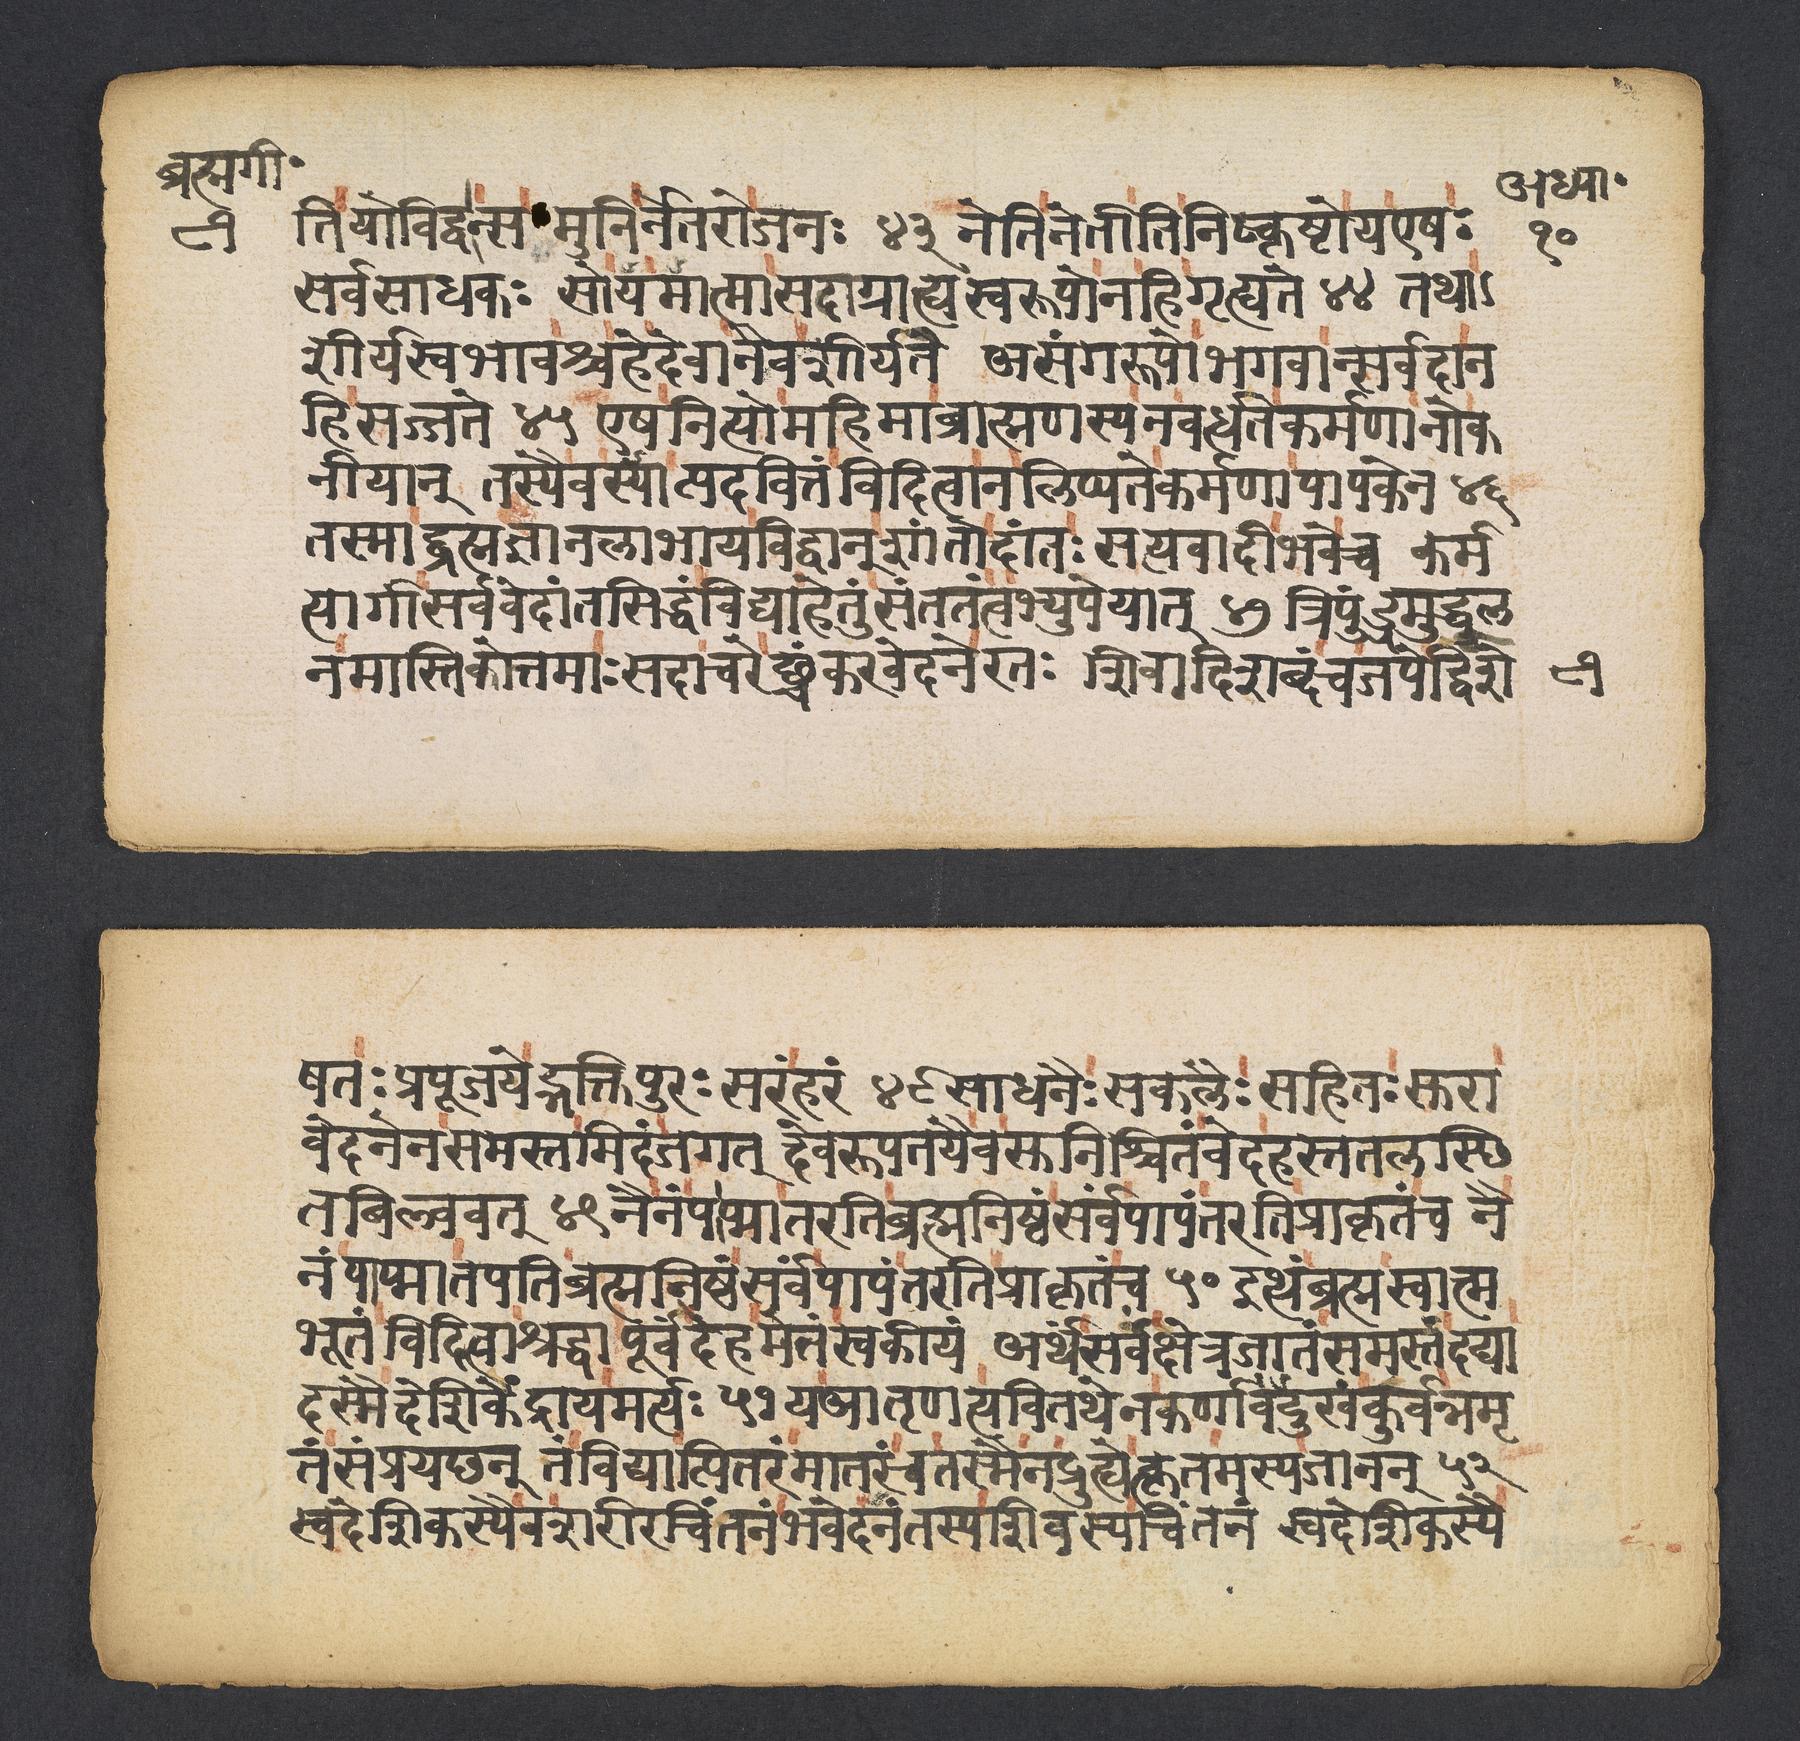 ब्रह्मगी॰
अध्या॰
८१
१०
तियोविद्वान्स मुनिर्नेतरोजनः ४३ नेतिनेतीतिनिष्कृष्टोयएषः
सर्वसाधकः सोयमात्मासदाग्राह्यस्वरूपोनहिगृह्यते ४४ तथाऽ
शीर्यस्वभावश्चहेदेवानैवशीर्यते असंगरूपोभगवान्सर्वदान
हिसज्जते ४५ एषनित्योमहिमाब्राह्मणस्यनवर्धतेकर्मणानोक
नीयान् तस्यैवस्यात्पदवित्तंविदित्वानलिप्यतेकर्मणापापकेन ४६
तस्माद्ब्रह्मज्ञानलाभायविद्वान्शांतोदांतः सत्यवादीभवेच्च कर्म
त्यागीसर्ववेदांतसिद्धंविद्याहेतुंसंततंत्वभ्युपेयात् ४७ त्रिपुंड्रमुद्धूल
नमास्तिकोत्तमाः सदाचरेच्छंकरवेदनेरतः शिवादिशब्दंचजपेद्विशे
८१
षतः प्रपूजयेद्भक्तिपुरः सरंहरं ४८ साधनैः सकलैः सहितः सुरा
वेदनेनसमस्तमिदंजगत् देवरूपतयैवसुनिश्चितंवेदहस्ततलस्थि
तबिल्ववत् ४९ नैनंपाप्मातरतिब्रह्मनिष्ठंसर्वंपापंतरतिप्राकृतंच नै
नंपाप्मातपतिब्रह्मनिष्ठंसर्वंपापंतरतिप्राकृतंच ५० इत्थंब्रह्मस्वात्म
भूतंविदित्वाश्रद्धापूर्वंदेहमेतंस्वकीयं अर्थंसर्वंक्षेत्रजातंसमस्तंदद्या
दस्मैदेशिकेंद्रायमर्त्यः ५१ यआतृणत्यवितथेनकर्णावदुःखंकुर्वन्नमृ
तंसंप्रयछन् तंविद्यात्पितरंमातरंचतस्मैनद्रुह्येत्कृतमस्यजानन् ५२
स्वदेशिकस्यैवशरीरचिंतनंभवेदनंतस्यशिवस्यचिंतनं स्वदेशिकस्यै